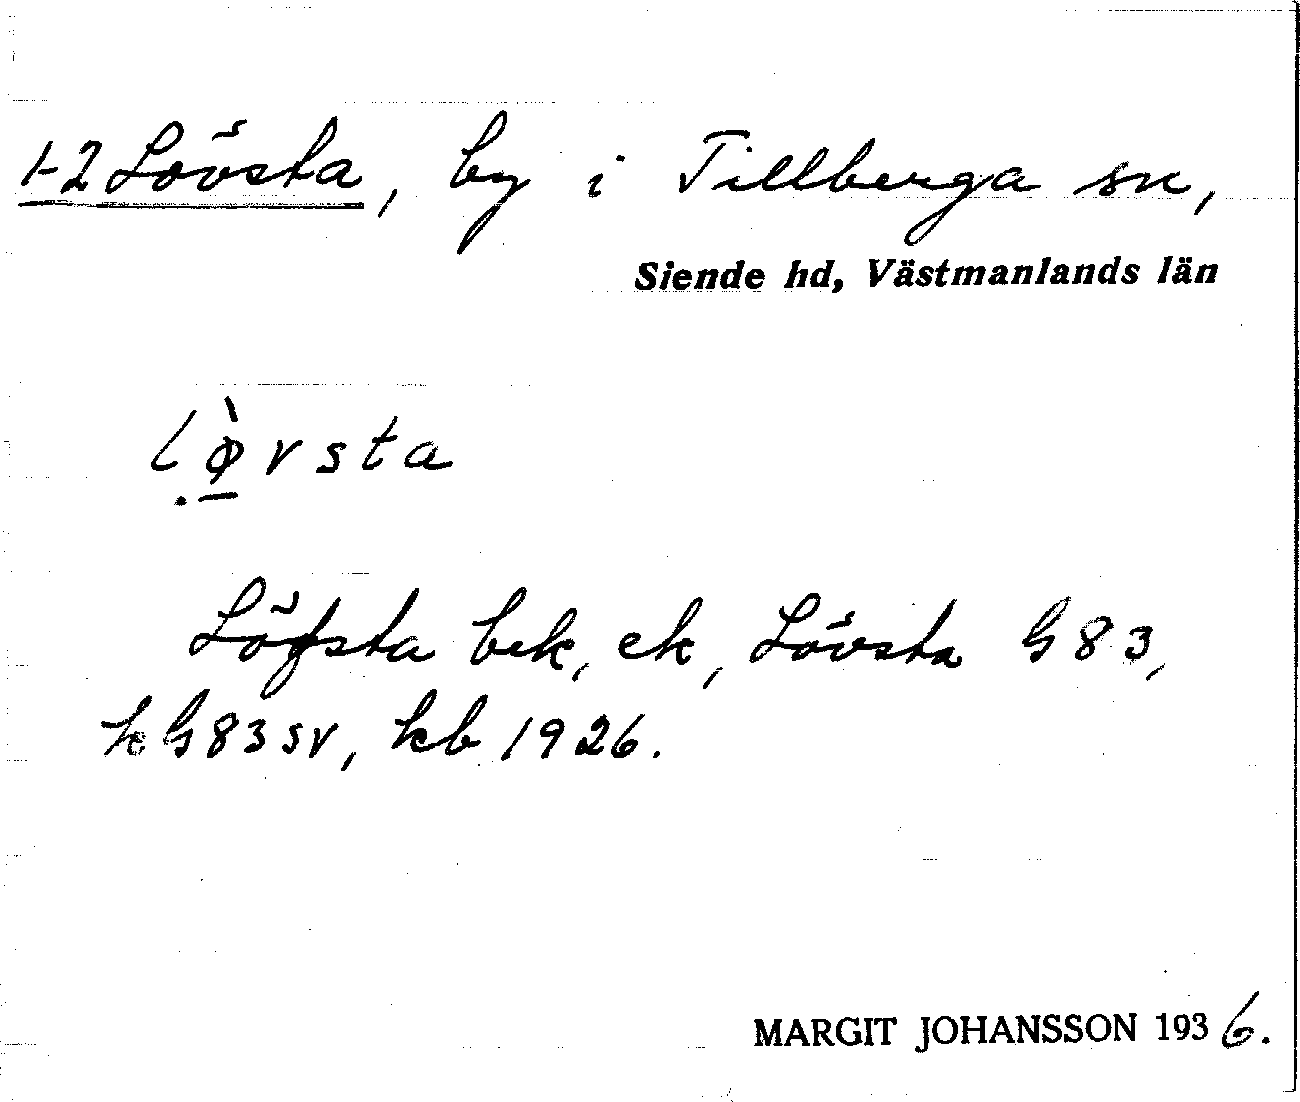 1-2 Lövsta, by i Tillberga sn,
Siende hd, Västmanlands län
lø̀vsta
Löfsta bek, ek, Lövsta G83,
k G83SV, kb 1926.
MARGIT JOHANSSON 1936.